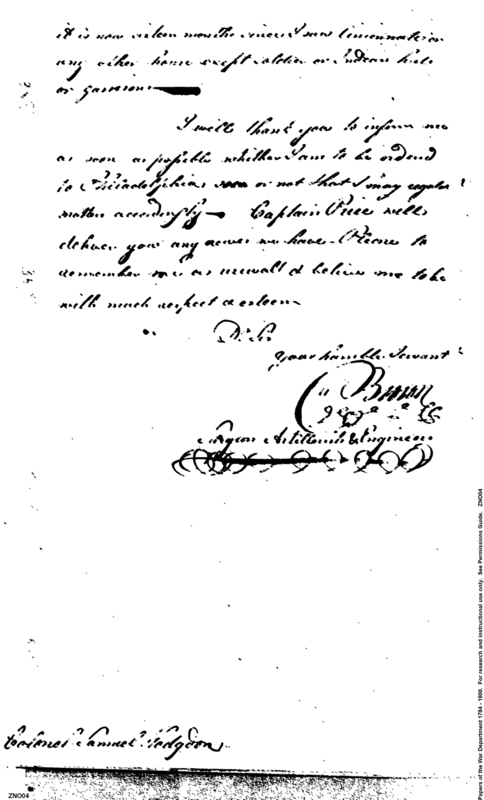 it is now sixteen months since I saw Cincinnati or
any other house except soldier or Indean huts
or garrisons
I will thank you to inform me
as soon as possible whither I am to be ordend
to Philadelphia or not that I may
matters accordingly — Captain Price will
deliver you any news we have - Please to
remember me as usuall & believe me to be
with much respect & esteem
Dr Sir
Your humble Servant
Brown
Surgeon Artillerists & Engineers
Colonel Samuel Hodgdon
ZNO04
Papers of the War Department 1784 - 1800. For research and instructional use only. See Permissions Guide. ZNO04